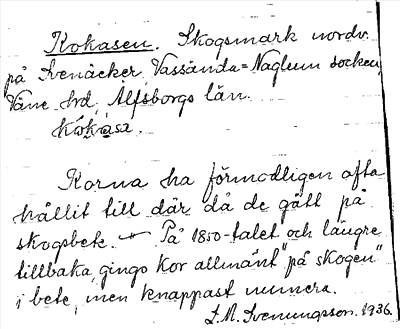 Kokasen. Skogsmark nordv.
på Svenåcker, Vassända=Naglum socken,
Väne hd, Älfsborgs län.
kókàsa.
Korna ha förmodligen ofta
hållit till där då de gått på
skogsbete. — På 1850-talet och längre
tillbaka gingo kor allmänt "på skogen"
i bete, men knappast numera.
L. M. Svenungsson. 1936.